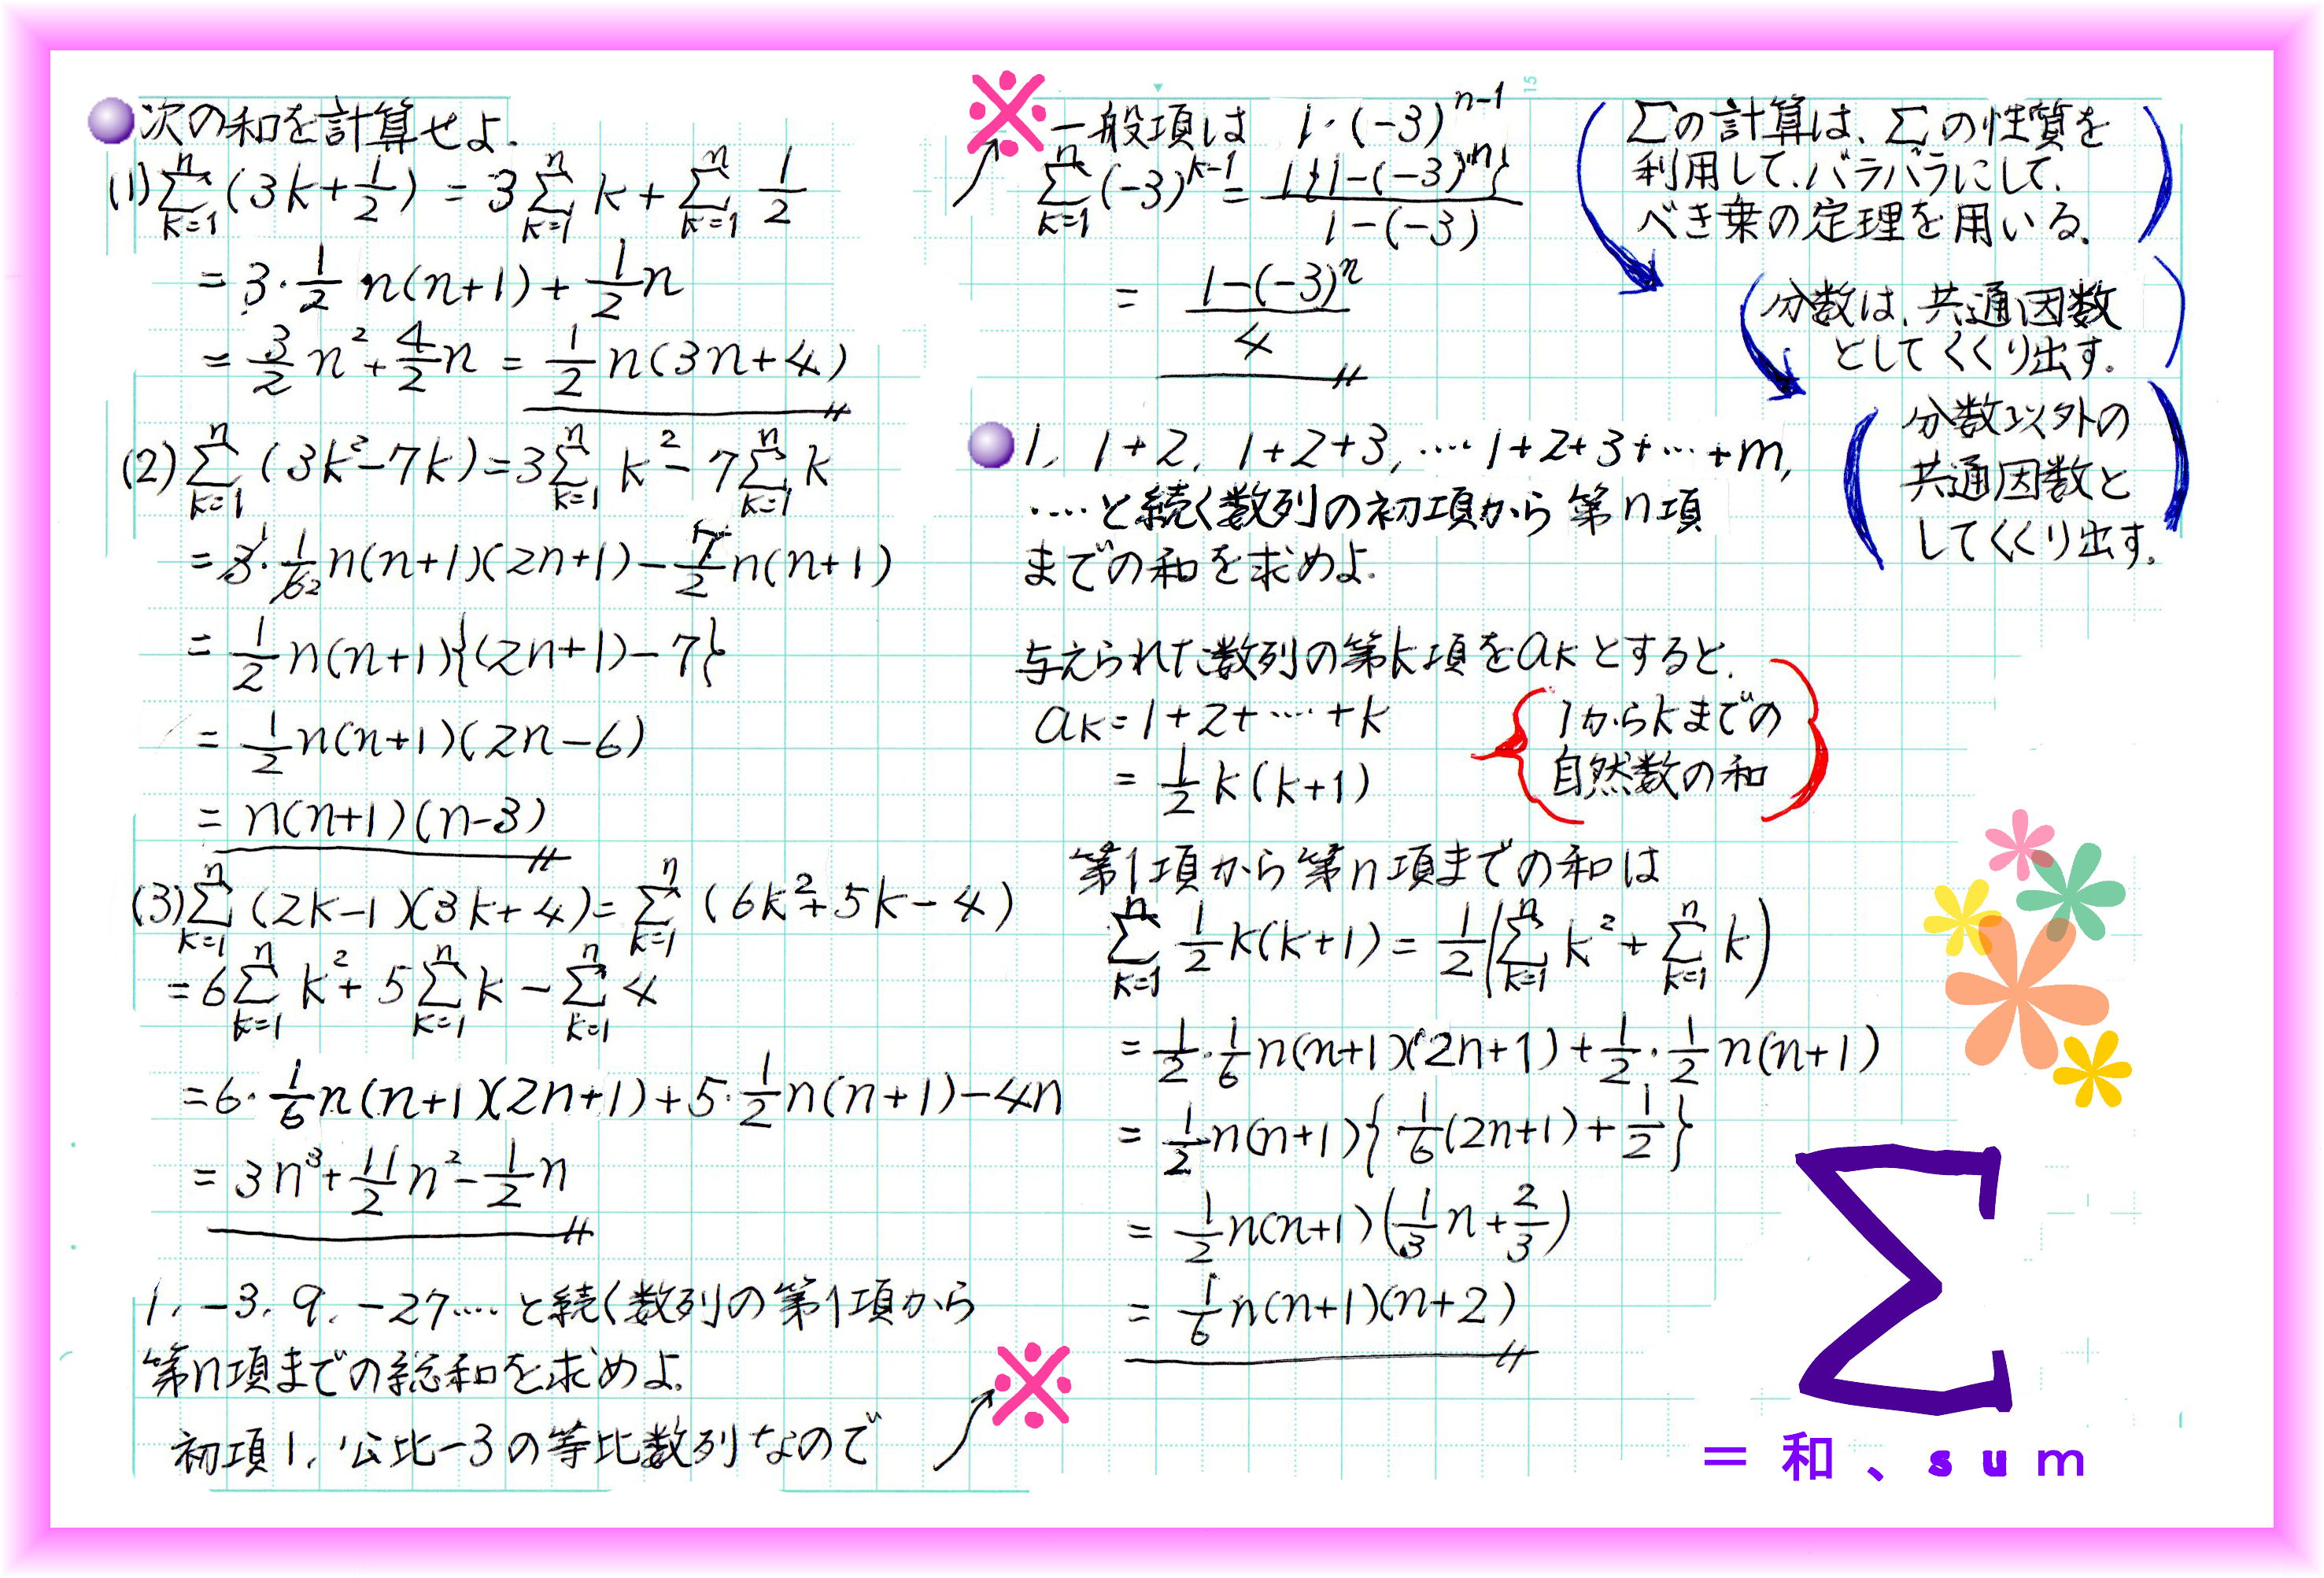 次の和を計算せよ.
(1) \sum_{k=1}^{n} (3k+\frac{1}{2}) = 3\sum_{k=1}^{n} k + \sum_{k=1}^{n} \frac{1}{2}
= 3·\frac{1}{2} n(n+1) + \frac{1}{2}n
= \frac{3}{2}n^2 + \frac{4}{2}n = \frac{1}{2}n(3n+4)
(2) \sum_{k=1}^{n} (3k^2-7k) = 3\sum_{k=1}^{n} k^2 - 7\sum_{k=1}^{n} k
= 3·\frac{1}{6}n(n+1)(2n+1) - \frac{7}{2}n(n+1)
= \frac{1}{2}n(n+1){(2n+1)-7}
= \frac{1}{2}n(n+1)(2n-6)
= n(n+1)(n-3)
(3) \sum_{k=1}^{n} (2k-1)(3k+4) = \sum_{k=1}^{n} (6k^2+5k-4)
= 6\sum_{k=1}^{n} k^2 + 5\sum_{k=1}^{n} k - \sum_{k=1}^{n} 4
= 6·\frac{1}{6}n(n+1)(2n+1) + 5·\frac{1}{2}n(n+1) - 4n
= 3n^3 + \frac{11}{2}n^2 - \frac{1}{2}n
1, -3, 9, -27…… と続く数列の第1項から
第n項までの総和を求めよ.
初項1, 公比-3の等比数列なので
※
※
一般項は 1·(-3)^{n-1}
\sum_{k=1}^{n} (-3)^{k-1} = \frac{1{1-(-3)^n}}{1-(-3)}
= \frac{1-(-3)^n}{4}
15
Σの計算は、Σの性質を
利用して、バラバラにして、
べき乗の定理を用いる.
分数は、共通因数
としてくくり出す。
分数以外の
共通因数と
してくくり出す。
1, 1+2, 1+2+3, …… 1+2+3+…+m,
……と続く数列の初項から第n項
までの和を求めよ.
与えられた数列の第k項をakとすると.
ak = 1+2+……+k
= \frac{1}{2}k(k+1)
1からkまでの
自然数の和
第1項から第n項までの和は
\sum_{k=1}^{n} \frac{1}{2}k(k+1) = \frac{1}{2}(\sum_{k=1}^{n} k^2 + \sum_{k=1}^{n} k)
= \frac{1}{2}·\frac{1}{6}n(n+1)(2n+1) + \frac{1}{2}·\frac{1}{2}n(n+1)
= \frac{1}{2}n(n+1){\frac{1}{6}(2n+1)+\frac{1}{2}}
= \frac{1}{2}n(n+1)(\frac{1}{3}n+\frac{2}{3})
= \frac{1}{6}n(n+1)(n+2)
Σ
＝和、sum